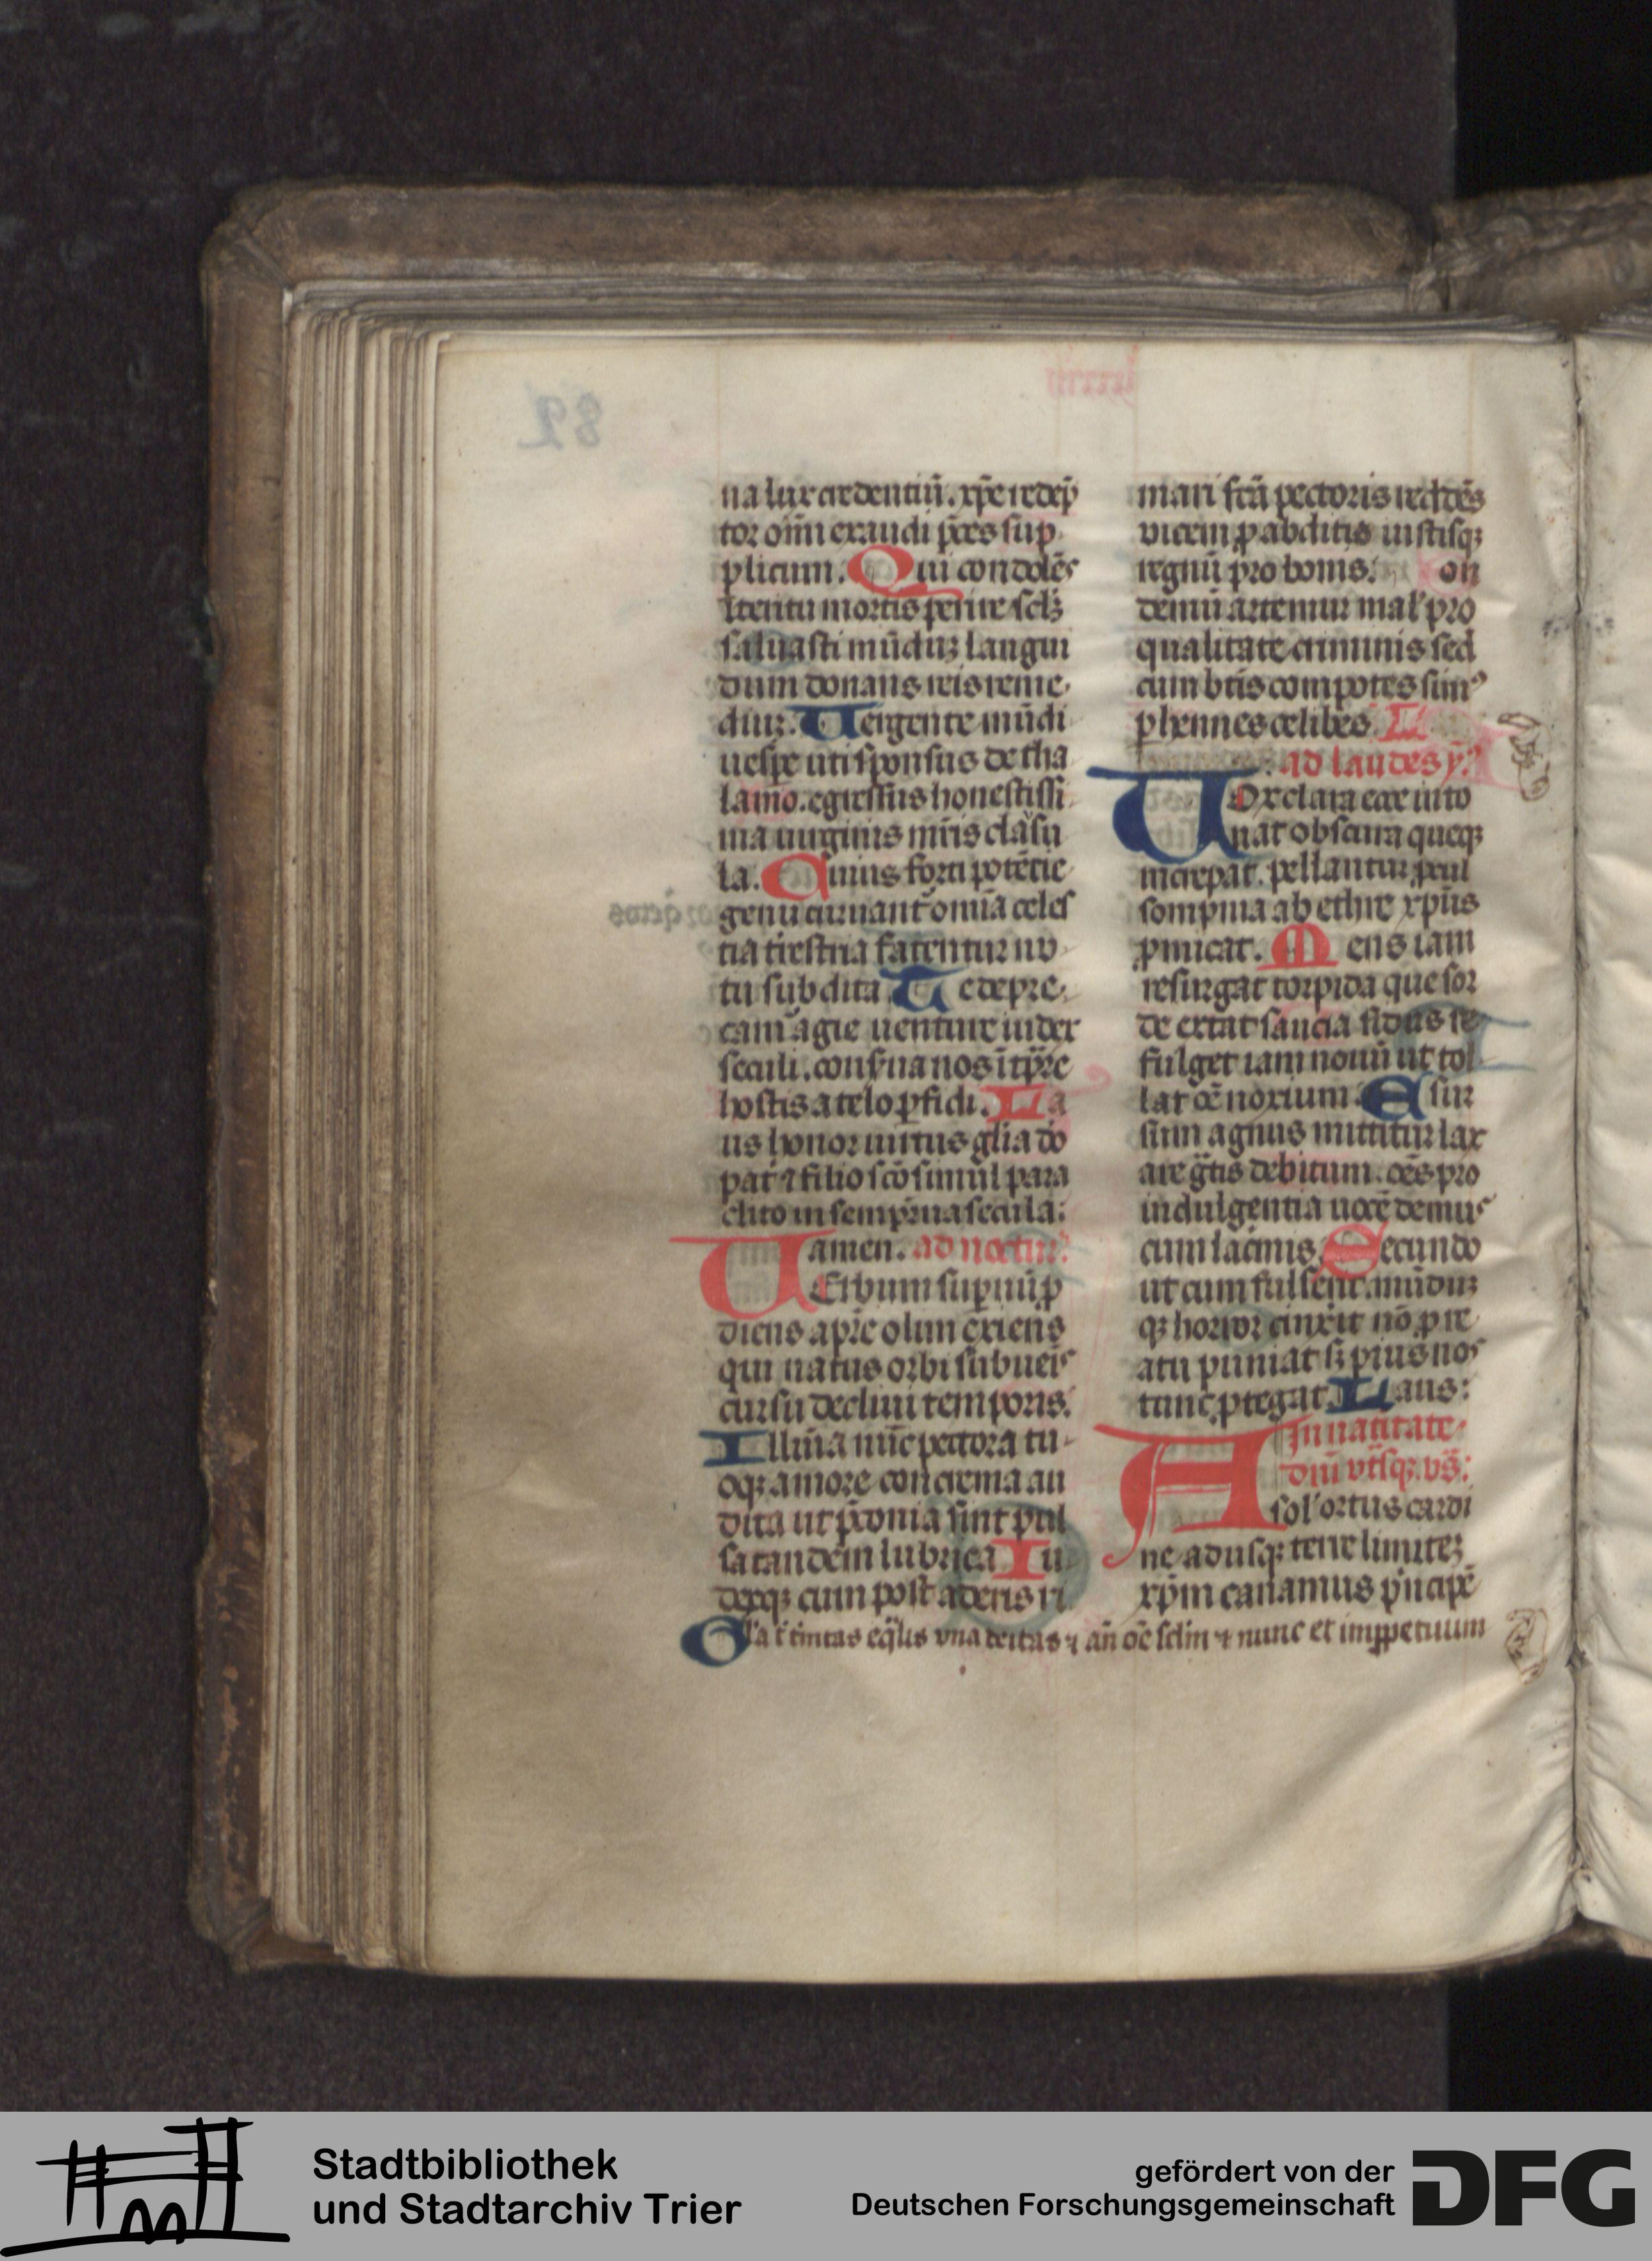 na lux credentiū. xp̄e redēp
tor om̄ exaudi p̄ces sup
plicum. Qui condolēs
īteritu mortis perire sclꝫ
saluasti mūduꝫ langui
dum donans reis reme
diuꝫ. Uergente mūdi
uesꝑe uti sponsus de tha
lamo. egressus honestissi
ma uirginis mr̄is clausu
la. Cuius forti potētie
genu curuant̄ om̄ia celes
tia t̄restria fatentur nu
tu subdita Te depre
cam̄ agie uenture iudex
seculi. conẜua nos ī tp̄re
hostis a telo ꝑfidi. La
us honor uirtus gl̄ia do
pat̄ ⁊ filio sc̄o simul para
clito in semp̄na secula.
amen. ad noctur̄.
Uerbum sup̄nū ꝓ
diens a pr̄e olim exiens
qui natus orbi subueīs
cursu decliui temporis.
Illūia nūc pectora tu
oqꝫ amore concrema au
dita ut p̄conia sint pul
sa tandem lubrica Iu
dexqꝫ cum post aderis ri
mari fc̄a pectoris reddēs
uicem ꝓ abditis iustisqꝫ
regnū pro bonis. on
demū artemur mal̓ pro
qualitate criminis sed
cum bt̄is compotes sim⁹
ꝑhennes celibes. L
ad laudes yᵐ
Uox clara ecce into
nat obscura queqꝫ
increpat. pellantur ꝓcul
sompnia ab ethre xpūs
ꝓmicat. Mens iam
resurgat torpida que sor
de extat saucia sidus re
fulget iam nouū ut tol
lat oē noxium. E sur
sum agnus mittitur lax
are gͣtis debitum. oēs pro
indulgentia uocē demus
cum lacimis. Secundo
ut cum fulserit. mūduꝫ
qꝫ horror cinxit nō ꝓ re
atu puniat sꝫ pius nos
tunc ꝓtegat. Laus:
In natitate
dn̄i vt̄sqꝫ vs̄:
A sol̓ ortus cardi
ne adusqꝫ terre limiteꝫ
xpm̄ canamus p̄ncipē
Gl̄a t̄ t̄nitas eqͣlis vna deitas ⁊ an̄ oē sclm ⁊ nunc et imꝑpetuum
Stadtbibliothek
und Stadtarchiv Trier
gefördert von der
Deutschen Forschungsgemeinschaft
DFG